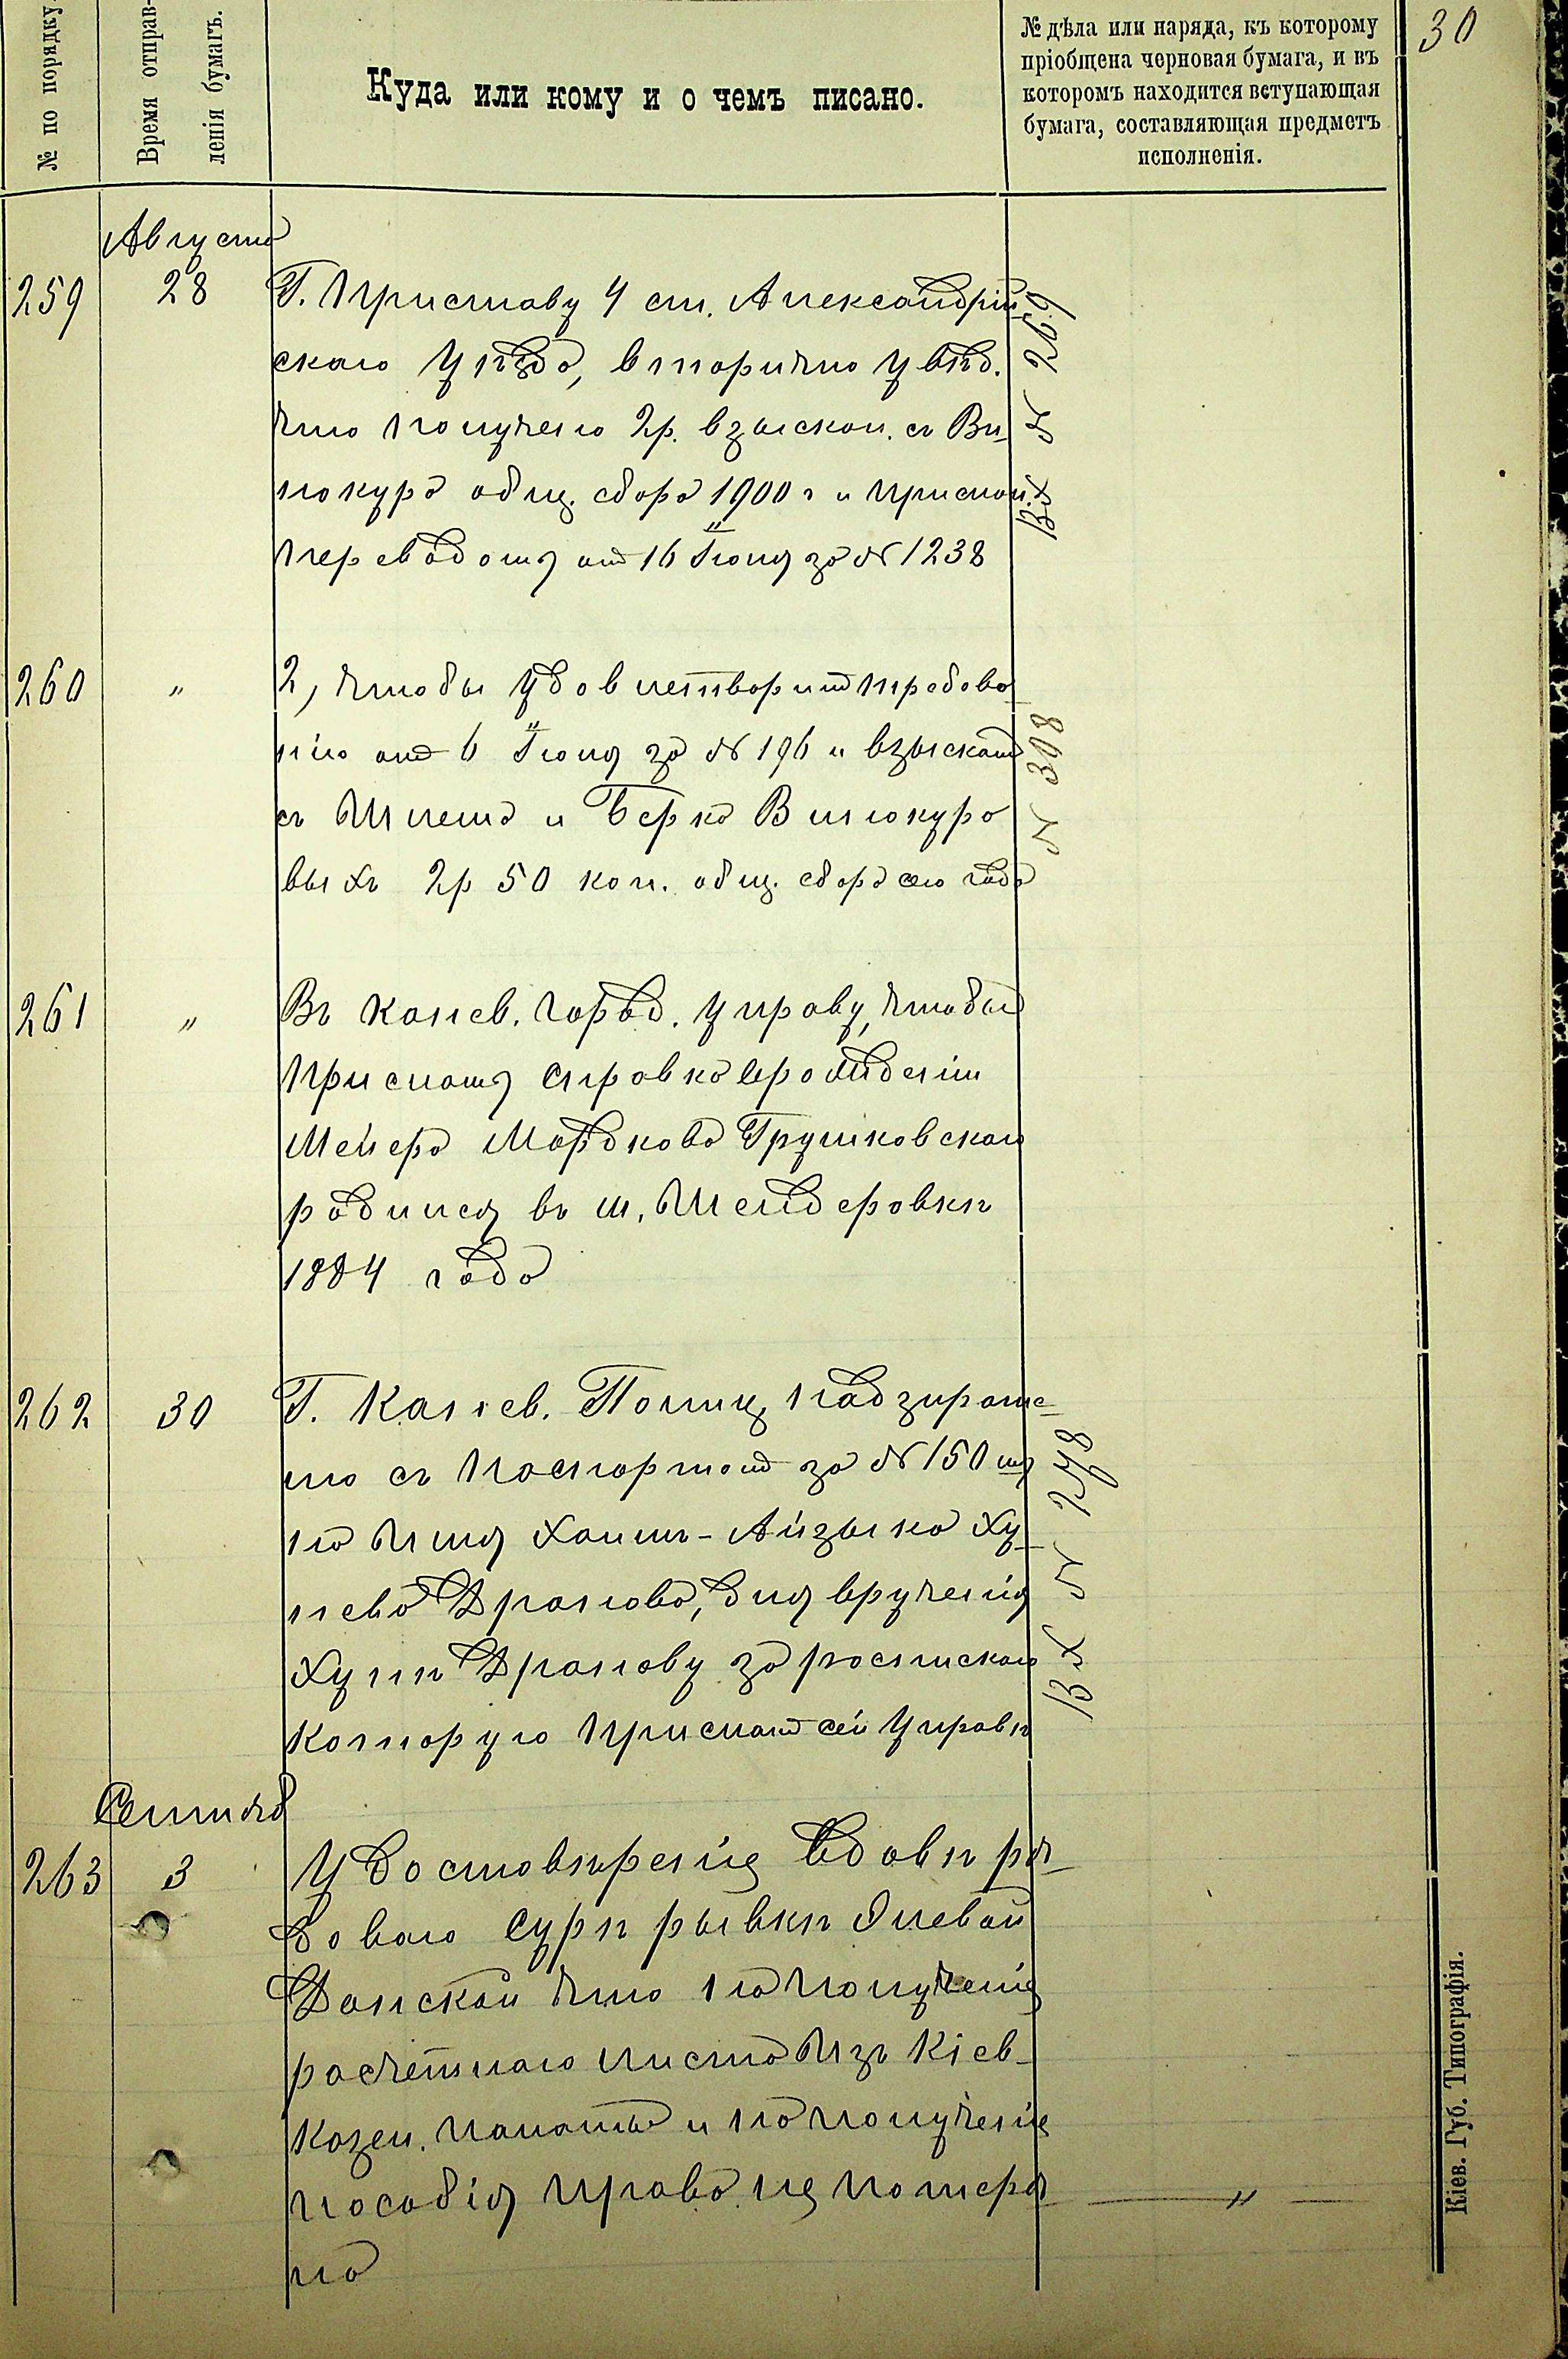 30
№ по порядку.
Время отправ-
ленія бумагъ.
Куда или кому и о чемъ писано.
№ дѣла или наряда, къ которому
пріобщена черновая бумага, и въ
которомъ находится вступающая
бумага, составляющая предметъ
исполненія.
Августа
259 28 Г. Приставу 4 ст. Александрій-
скаго уѣзда, вторично увѣд.
что получено 2р. взыскан. съ Ви-
нокура общ. сбора 1900 г и прислан.
переводомъ отъ 16 Іюня за № 1238
Вх № 269
260 " 2, чтобы удовлетворить требова
нію отъ 6 Іюня за № 196 и взыскать
съ Шлема и Берка Винокуро
выхъ 2р 50 коп. общ. сбора сего года
№ 308
261 " Въ Канев. город. управу, чтобы
прислать справка врожденіи
Мейера Мордкова Грушковскаго
родился въ м. Шендеровкѣ
1884 года
262 30 Г. Канев. Полиц. надзирате-
лю съ паспортомъ за № 150 на
имя Хаимъ-Айзыка Ху-
нева Драгова, для врученія
Хунѣ Драгову за роспискою
которую прислать сей управѣ
Вх № 278
Сентяб
263 3 Удостовѣреніе вдовѣ ря-
доваго Сурѣ рывкѣ Янев­ой
Донской что на полученіе
расчетнаго листа изъ Кіев-
казен. палаты и на полученіе
пособія право не потеря "
ла
Кіев. Губ. Типографія.